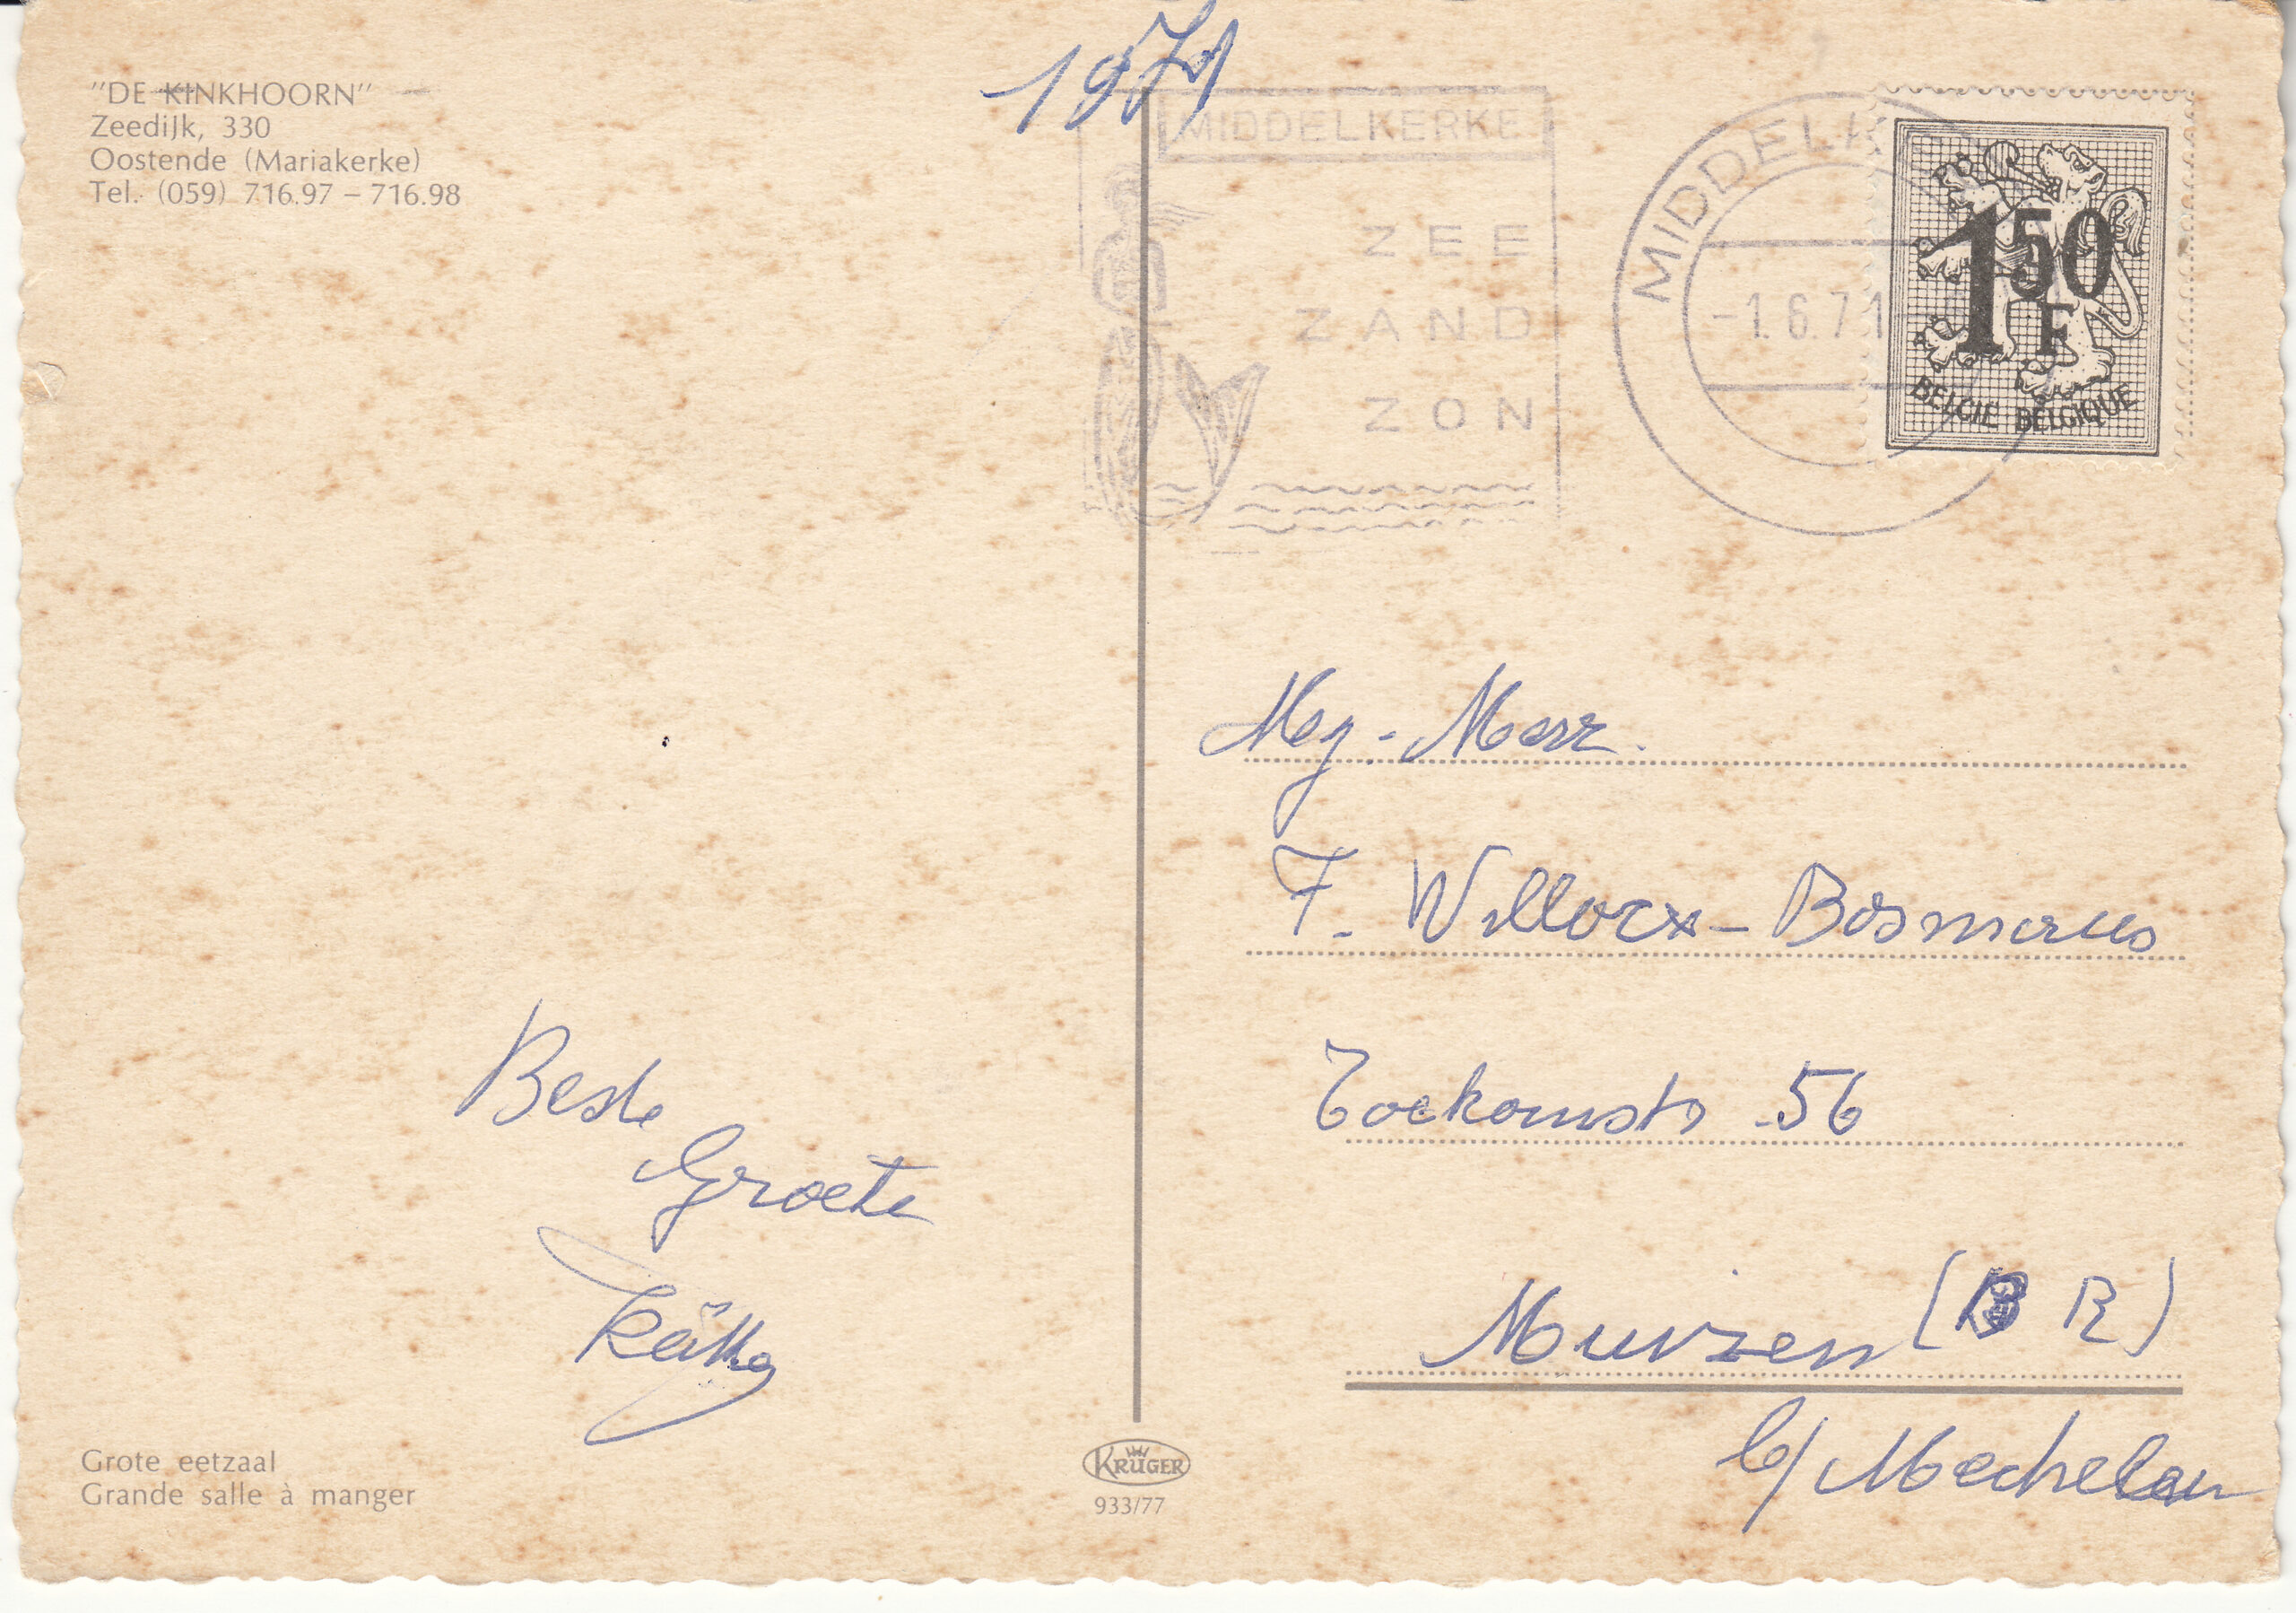 "DE KINKHOORN"
Zeedijk, 330
Oostende (Mariakerke)
Tel. (059) 716.97 – 716.98
1971
MIDDELKERKE
ZEE
ZAND
ZON
MIDDELK
-1.6.71
1 50 F
BELGIE BELGIQUE
F. Willocx - Bosmans
Toekomststr 56
Muizen (B R)
b/ Mechelen
Beste
Groete
Grote eetzaal
Grande salle à manger
KRÜGER
933/77